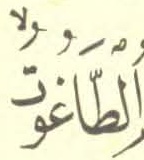 الطَّاغُوتُۙ